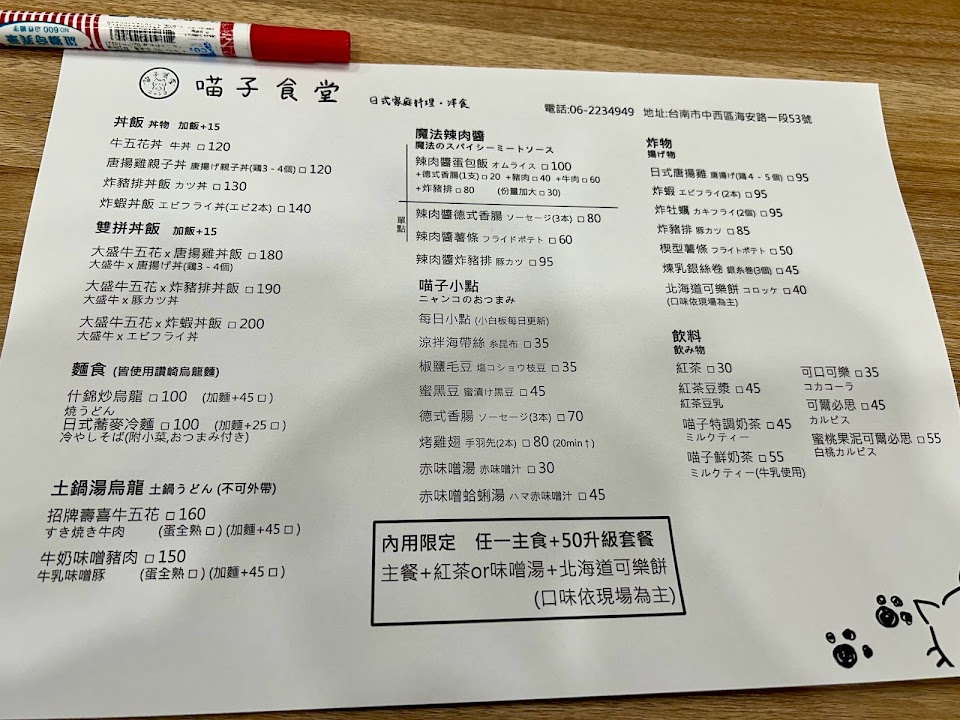 喵子食堂
日式家庭料理・洋食
電話:06-2234949 地址:台南市中西區海安路一段53號
丼飯 丼物 加飯+15
牛五花丼 牛丼 □ 120
唐揚雞親子丼 唐揚げ親子丼(鶏3 - 4個) □ 120
炸豬排丼飯 カツ丼 □ 130
炸蝦丼飯 エビフライ丼(エビ2本) □ 140
雙拼丼飯 加飯+15
大盛牛五花 x 唐揚雞丼飯 □ 180
大盛牛 x 唐揚げ丼(鶏3 - 4個)
大盛牛五花 x 炸豬排丼飯 □ 190
大盛牛 x 豚カツ丼
大盛牛五花 x 炸蝦丼飯 □ 200
大盛牛 x エビフライ丼
麵食 (皆使用讚崎烏龍麵)
什錦炒烏龍 □ 100 (加麵+45 □)
焼うどん
日式蕎麥冷麵 □ 100 (加麵+25 □)
冷やしそば(附小菜,おつまみ付き)
土鍋湯烏龍 土鍋うどん (不可外帶)
招牌壽喜牛五花 □ 160
すき焼き牛肉 (蛋全熟 □) (加麵+45 □)
牛奶味噌豬肉 □ 150
牛乳味噌豚 (蛋全熟 □) (加麵+45 □)
魔法辣肉醬
魔法のスパイシーミートソース
辣肉醬蛋包飯 オムライス □ 100
+德式香腸(1支) □ 20 +豬肉 □ 40 +牛肉 □ 60
+炸豬排 □ 80 (份量加大 □ 30)
單點
辣肉醬德式香腸 ソーセージ(3本) □ 80
辣肉醬薯條 フライドポテト □ 60
辣肉醬炸豬排 豚カツ □ 95
喵子小點
ニャンコのおつまみ
每日小點 (小白板每日更新)
涼拌海帶絲 糸昆布 □ 35
椒鹽毛豆 塩コショウ枝豆 □ 35
蜜黑豆 蜜漬け黒豆 □ 45
德式香腸 ソーセージ(3本) □ 70
烤雞翅 手羽先(2本) □ 80 (20min↑)
赤味噌湯 赤味噌汁 □ 30
赤味噌蛤蜊湯 ハマ赤味噌汁 □ 45
內用限定 任一主食+50升級套餐
主餐+紅茶or味噌湯+北海道可樂餅
(口味依現場為主)
炸物
揚げ物
日式唐揚雞 唐揚げ(鶏4 - 5個) □ 95
炸蝦 エビフライ(2本) □ 95
炸牡蠣 カキフライ(2個) □ 95
炸豬排 豚カツ □ 85
楔型薯條 フライトポテト □ 50
煉乳銀絲卷 銀糸巻(3個) □ 45
北海道可樂餅 コロッケ □ 40
(口味依現場為主)
飲料
飲み物
紅茶 □ 30
紅茶豆漿 □ 45
紅茶豆乳
喵子特調奶茶 □ 45
ミルクティー
喵子鮮奶茶 □ 55
ミルクティー(牛乳使用)
可口可樂 □ 35
コカコーラ
可爾必思 □ 45
カルピス
蜜桃果泥可爾必思 □ 55
白桃カルピス